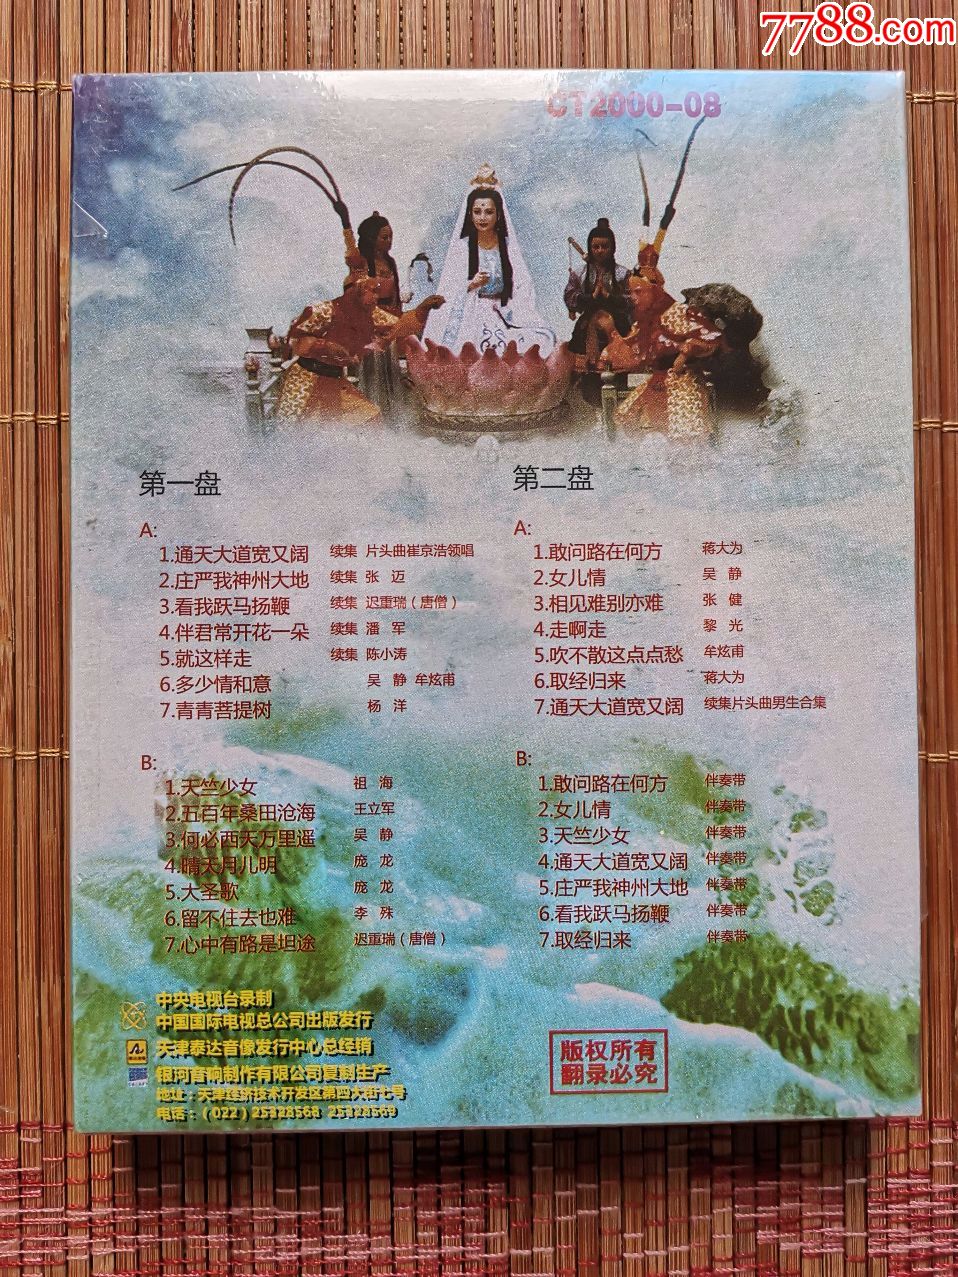 7788.com
CT2000-08
第一盘
A:
1.通天大道宽又阔 续集 片头曲崔京浩领唱
2.庄严我神州大地 续集 张 迈
3.看我跃马扬鞭 续集 迟重瑞（唐僧）
4.伴君常开花一朵 续集 潘 军
5.就这样走 续集 陈小涛
6.多少情和意 吴 静 牟炫甫
7.青青菩提树 杨 洋
B:
1.天竺少女 祖 海
2.五百年桑田沧海 王立军
3.何必西天万里遥 吴 静
4.晴天月儿明 庞 龙
5.大圣歌 庞 龙
6.留不住去也难 李 殊
7.心中有路是坦途 迟重瑞（唐僧）
第二盘
A:
1.敢问路在何方 蒋大为
2.女儿情 吴 静
3.相见难别亦难 张 健
4.走啊走 黎 光
5.吹不散这点点愁 牟炫甫
6.取经归来 蒋大为
7.通天大道宽又阔 续集片头曲男生合集
B:
1.敢问路在何方 伴奏带
2.女儿情 伴奏带
3.天竺少女 伴奏带
4.通天大道宽又阔 伴奏带
5.庄严我神州大地 伴奏带
6.看我跃马扬鞭 伴奏带
7.取经归来 伴奏带
中央电视台录制
中国国际电视总公司出版发行
天津泰达音像发行中心总经销
银河音响制作有限公司复制生产
地址：天津经济技术开发区第四大街七号
电话：（022）25328568 25328569
版权所有
翻录必究